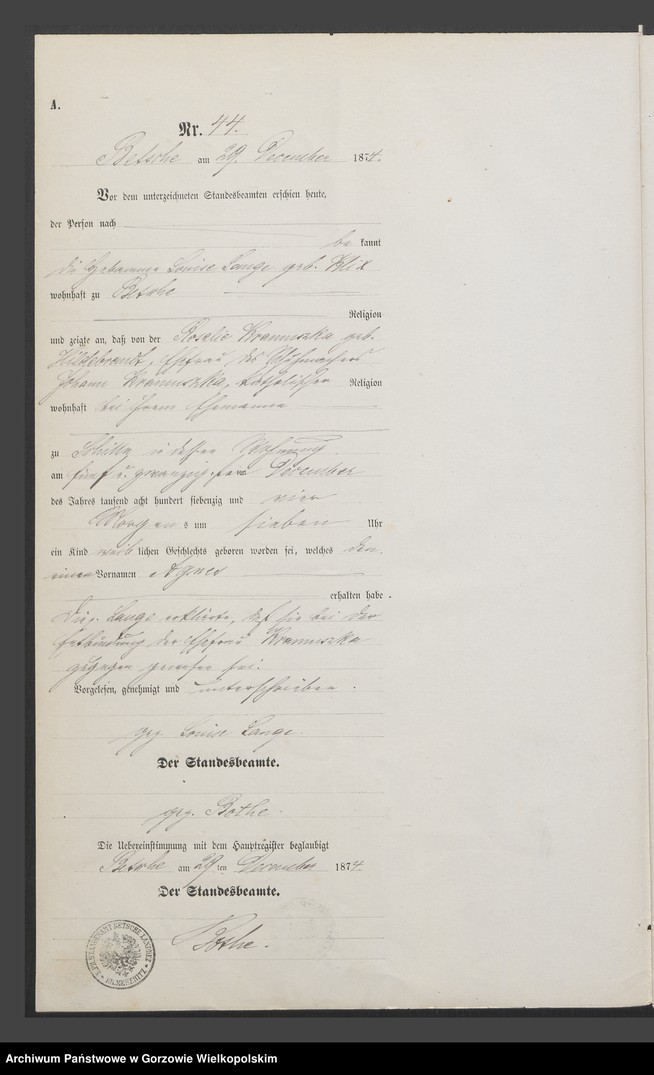 A.
Nr. 44.
Betsche am 29. December 1874.
Vor dem unterzeichneten Standesbeamten erschien heute,
der Person nach
be kannt
die Hebamme Louise Lange geb. Klix
wohnhaft zu Betsche
Religion
und zeigte an, daß von der Rosalie Kramuszka geb.
Hildebrandt, Ehefrau des
Johann Kramuszka, katholischer Religion
wohnhaft bei ihrem Ehemanne
zu Schilln in dessen Wohnung
am fünf u. zwanzigsten December
des Jahres tausend acht hundert siebenzig und vier
Morgens um sieben Uhr
ein Kind weiblichen Geschlechts geboren worden sei, welches den
einen Vornamen Agnes
erhalten habe.
Die p. Lange erklärte, daß sie bei der
Entbindung der Ehefrau Kramuszka
zugegen gewesen sei.
Vorgelesen, genehmigt und unterschrieben.
gez. Louise Lange.
Der Standesbeamte.
gez. Bothe.
Die Uebereinstimmung mit dem Hauptregister beglaubigt
Betsche am 29ten December 1874.
Der Standesbeamte.
Bothe.
STANDESAMT BETSCHE LANDBEZ.
KR. MESERITZ
Archiwum Państwowe w Gorzowie Wielkopolskim